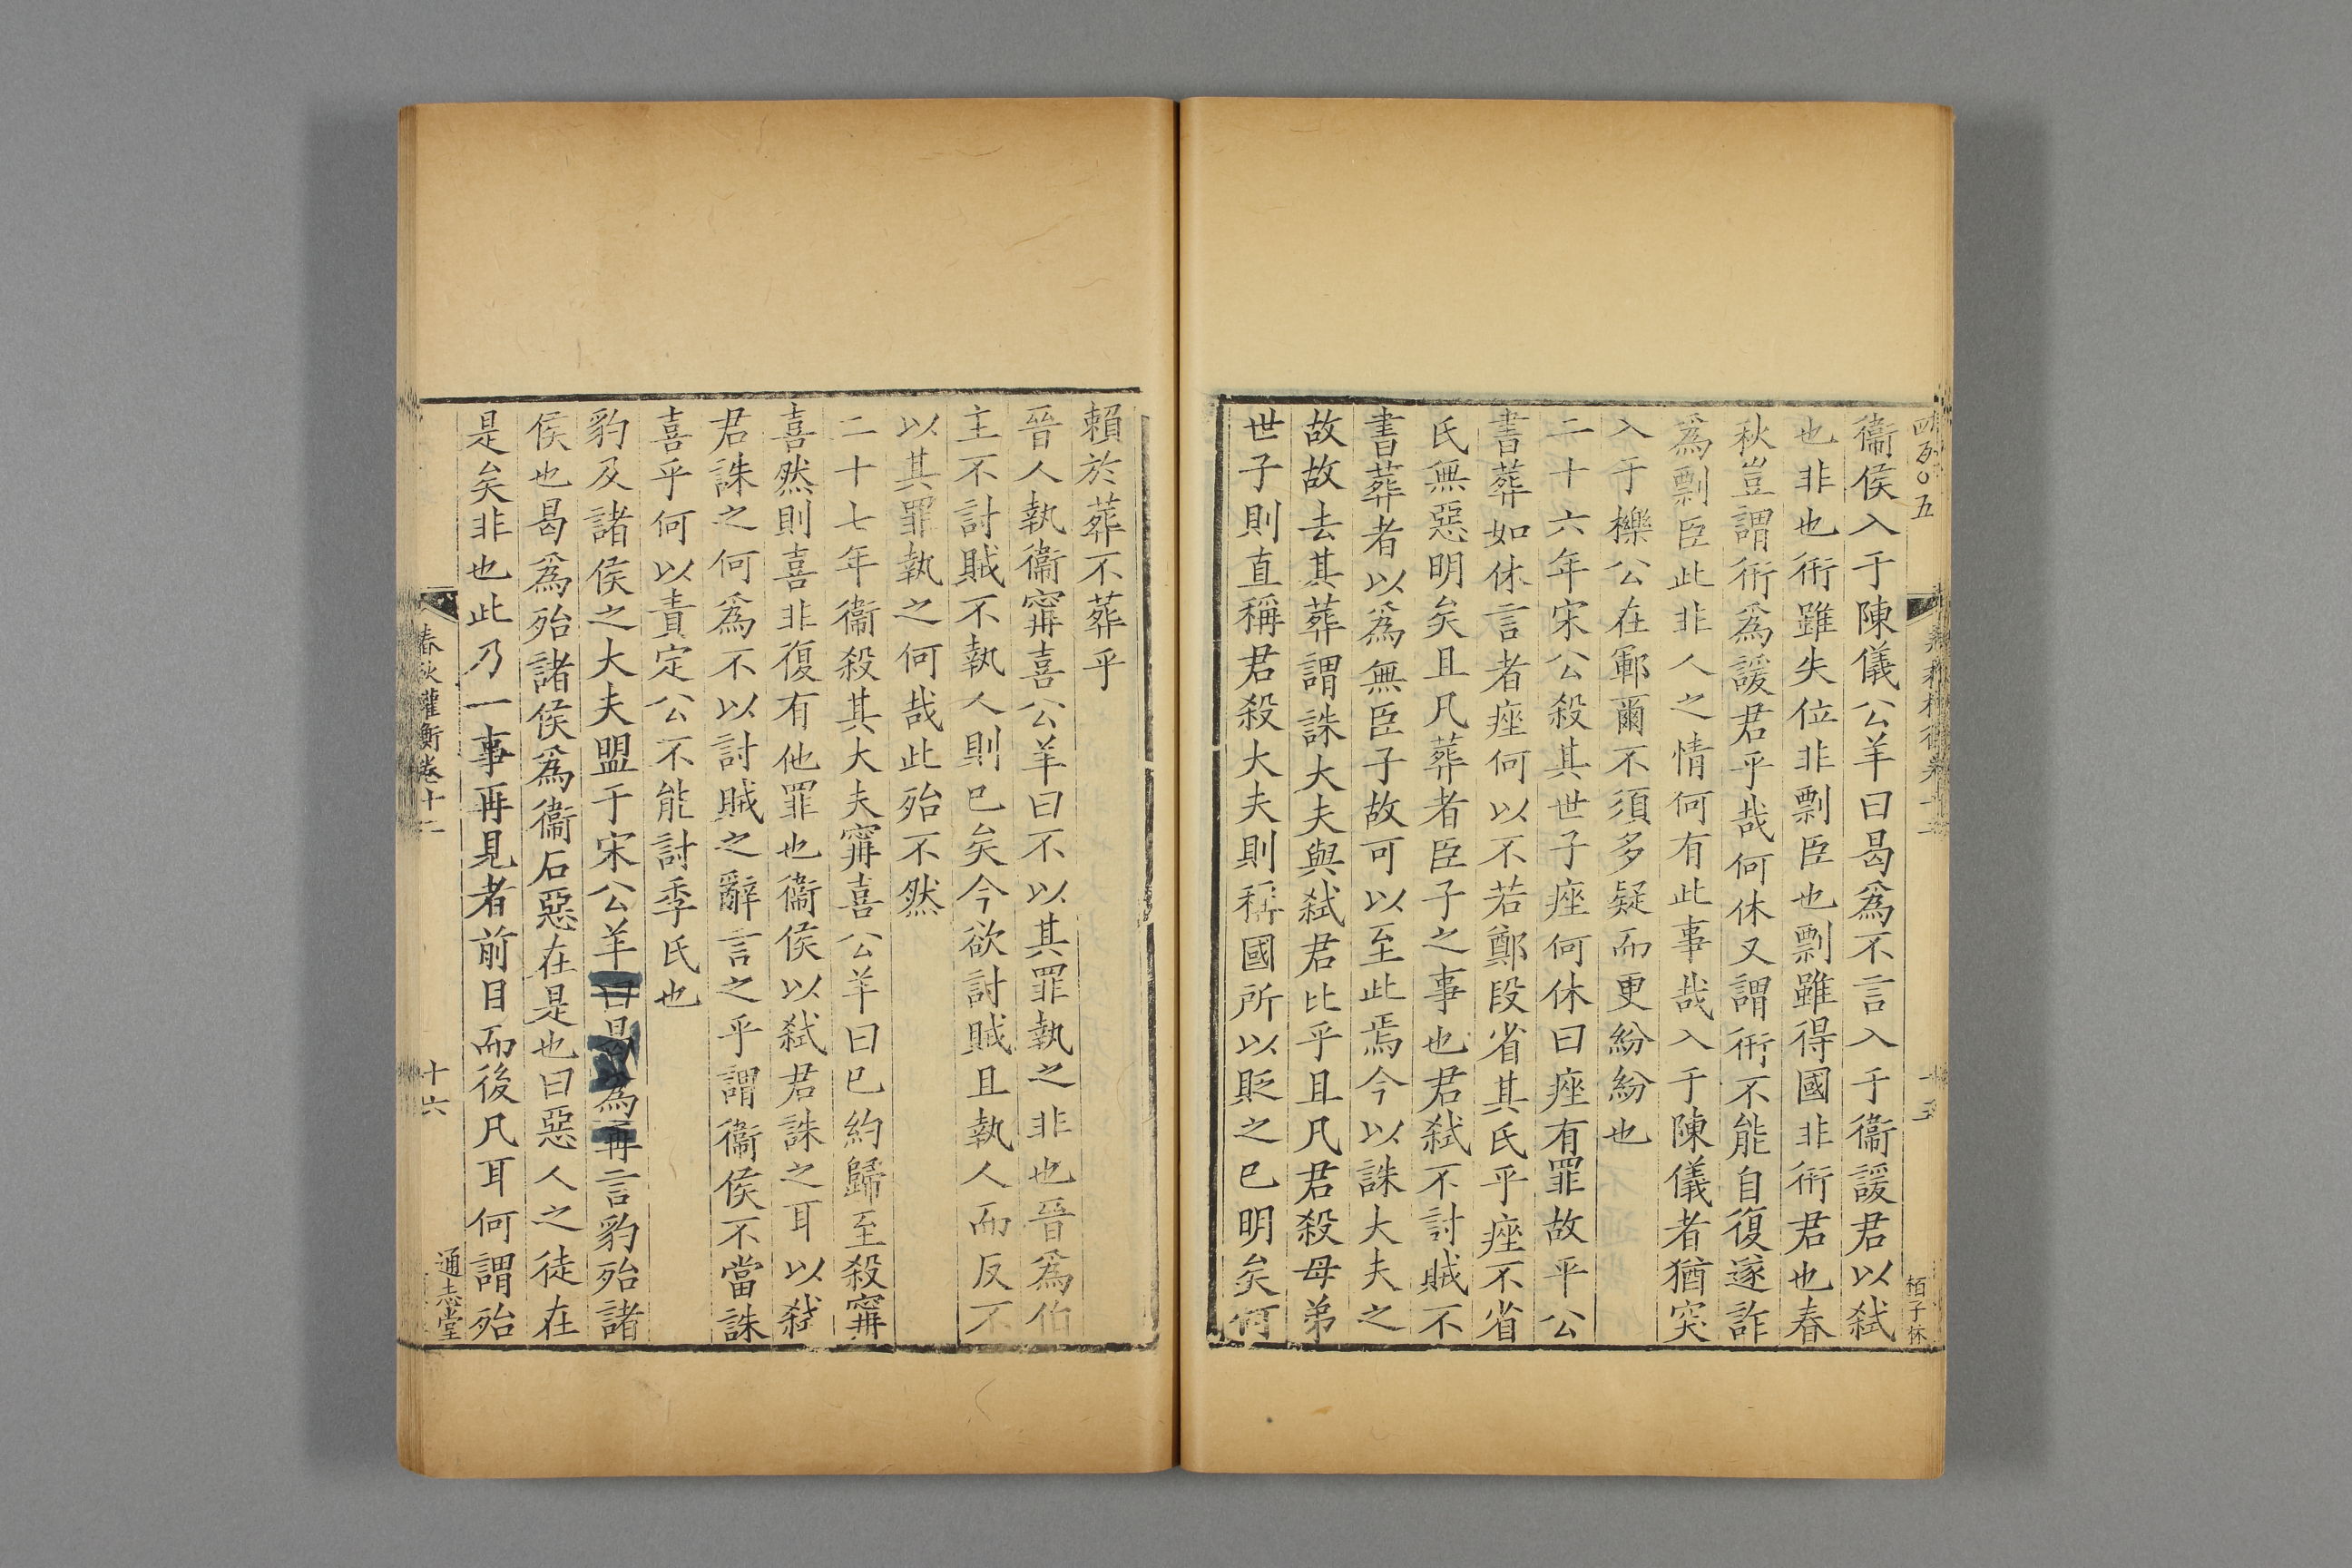 衞侯入于陳儀公羊曰曷爲不言入于衞諼君以弑
也非也衎雖失位非剽臣也剽雖得國非衎君也春
秋豈謂衎爲諼君乎哉何休又謂衎不能自復遂詐
爲剽臣此非人之情何有此事哉入于陳儀者猶突
入于櫟公在鄆爾不須多疑而更紛紛也
二十六年宋公殺其世子痤何休曰痤有罪故平公
書葬如休言者痤何以不若鄭段省其氏乎痤不省
氏無惡明矣且凡葬者臣子之事也君弑不討賊不
書葬者以爲無臣子故可以至此焉今以誅大夫之
故故去其葬謂誅大夫與弑君比乎且凡君殺母弟
世子則直稱君殺大夫則稱國所以貶之已明矣何
賴於葬不葬乎
晉人執衞甯喜公羊曰不以其罪執之非也晉爲伯
主不討賊不執人則已矣今欲討賊且執人而反不
以其罪執之何哉此殆不然
二十七年衞殺其大夫甯喜公羊曰已約歸至殺甯
喜然則喜非復有他罪也衞侯以弑君誅之耳以弑
君誅之何爲不以討賊之辭言之乎謂衞侯不當誅
喜乎何以責定公不能討季氏也
豹及諸侯之大夫盟于宋公羊曰曷爲再言豹殆諸
侯也曷爲殆諸侯爲衞石惡在是也曰惡人之徒在
是矣非也此乃一事再見者前目而後凡耳何謂殆
春秋權衡卷十二
十六
通志堂